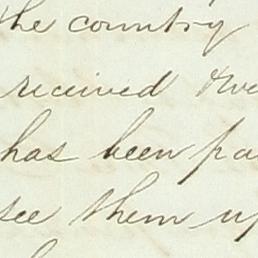 the country
received
has been
see them